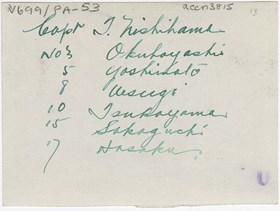 V699/PA-53
accn3815
13
Capt T. Nishihama
No 3 Okubayashi
5 Yoshimoto
8 Uesugi
10 Tsukayama
15 Sakaguchi
17 Hosaka
U